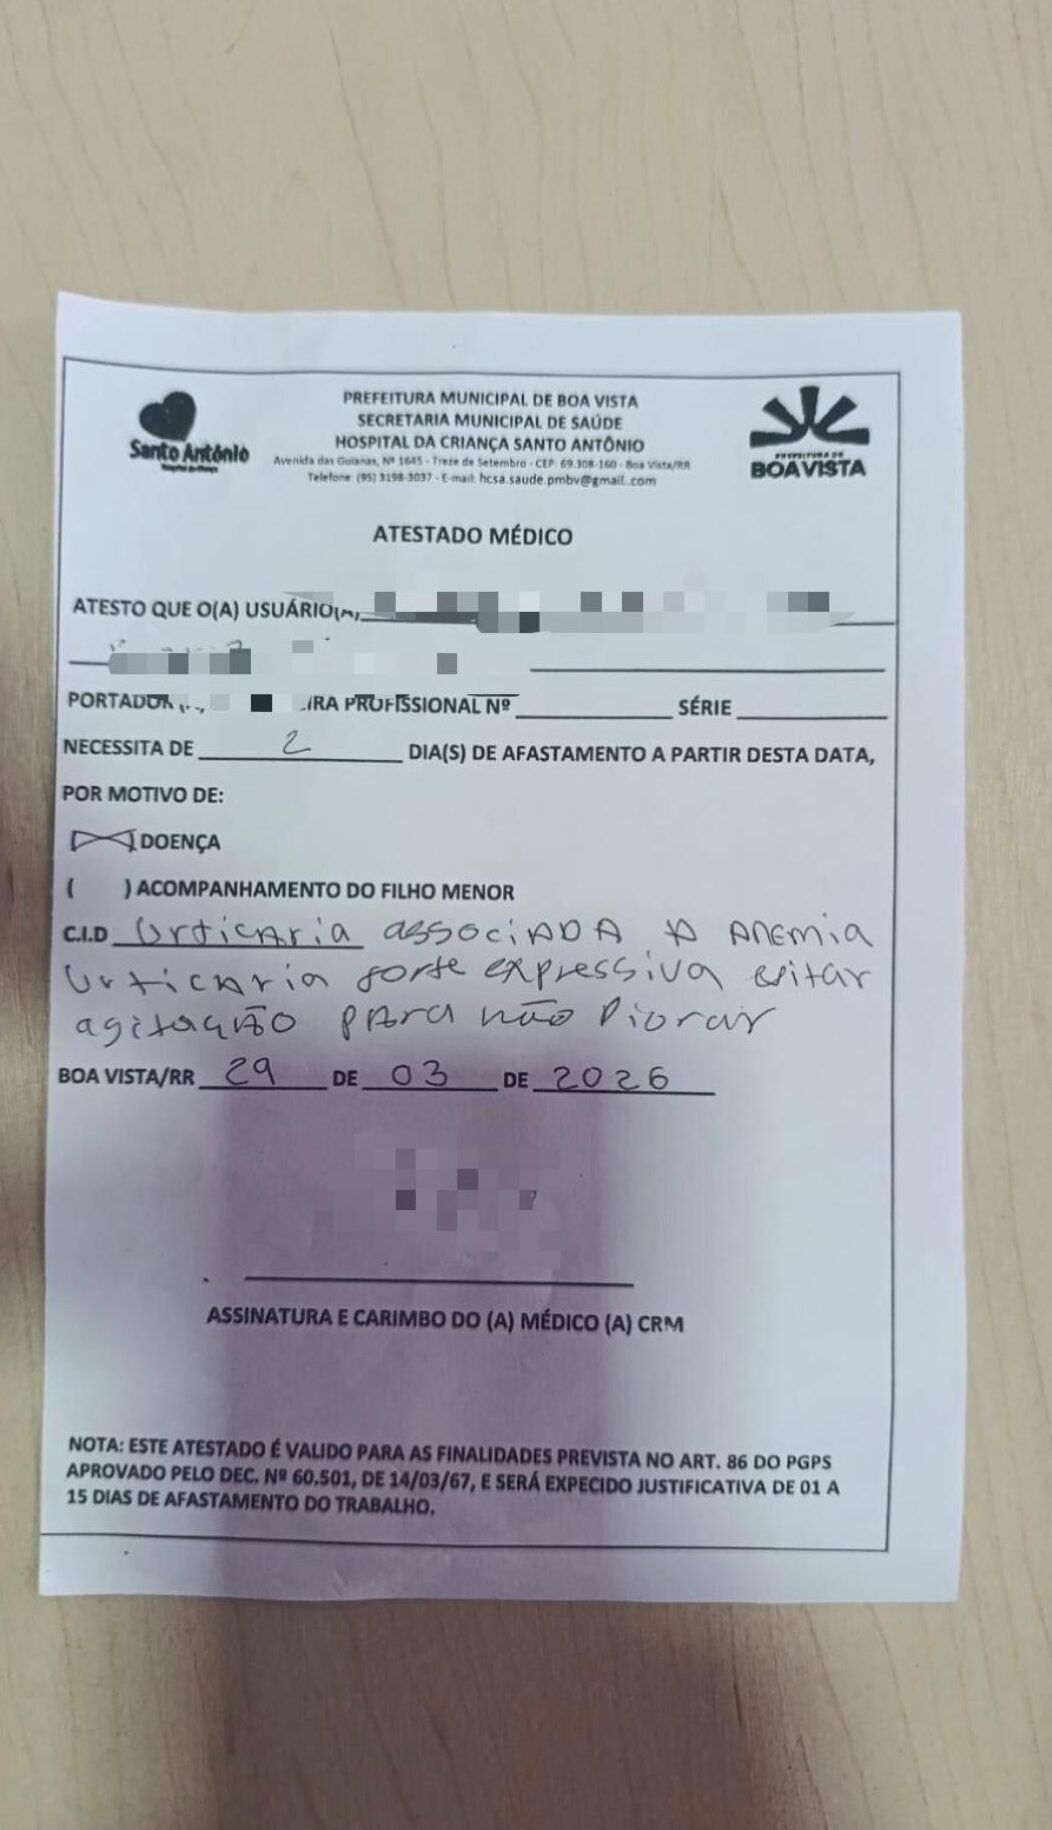 Santo Antônio
PREFEITURA MUNICIPAL DE BOA VISTA
SECRETARIA MUNICIPAL DE SAÚDE
HOSPITAL DA CRIANÇA SANTO ANTÔNIO
Avenida das Guianas, Nº 1645 - Treze de Setembro - CEP: 69.308-160 - Boa Vista/RR
Telefone: (95) 3198-3037 - E-mail: hcsa.saude.pmbv@gmail..com
PREFEITURA DE
BOA VISTA
ATESTADO MÉDICO
ATESTO QUE O(A) USUÁRIO(A)
PORTADOR PROFISSIONAL Nº SÉRIE
NECESSITA DE 2 DIA(S) DE AFASTAMENTO A PARTIR DESTA DATA,
POR MOTIVO DE:
DOENÇA
( ) ACOMPANHAMENTO DO FILHO MENOR
C.I.D Urticaria associADA A Anemia
Urticaria forte expressiva evitar
agitação para não Piorar
BOA VISTA/RR 29 DE 03 DE 2026
ASSINATURA E CARIMBO DO (A) MÉDICO (A) CRM
NOTA: ESTE ATESTADO É VALIDO PARA AS FINALIDADES PREVISTA NO ART. 86 DO PGPS
APROVADO PELO DEC. Nº 60.501, DE 14/03/67, E SERÁ EXPECIDO JUSTIFICATIVA DE 01 A
15 DIAS DE AFASTAMENTO DO TRABALHO.